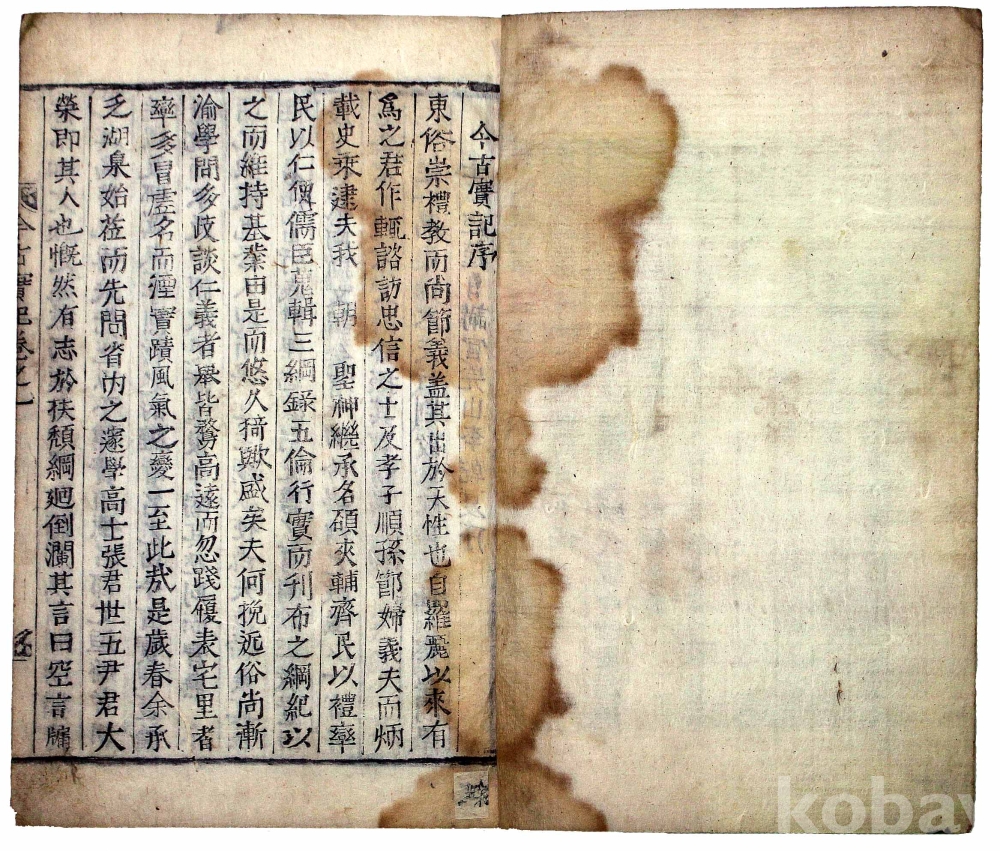 今古實記序
東俗崇禮教而尙節義盖其出於天性也自羅麗以來有
爲之君作輒諮訪忠信之士及孝子順孫節婦義夫而炳
載史乘逮夫我 朝 聖神繼承名碩夾輔齊民以禮率
民以仁俾儒臣蒐輯三綱錄五倫行實而刊布之綱紀以
之而維持基業由是而悠久猗歟盛矣夫何挽近俗尙漸
渝學問多歧談仁義者擧皆騖高遠而忽踐履表宅里者
率多冒虛名而湮實蹟風氣之變一至此哉是歲春余承
乏湖臬始莅而先問省內之邃學高士張君世五尹君大
榮即其人也慨然有志於扶頹綱廻倒瀾其言曰空言牖
今古實記卷之一
kobay